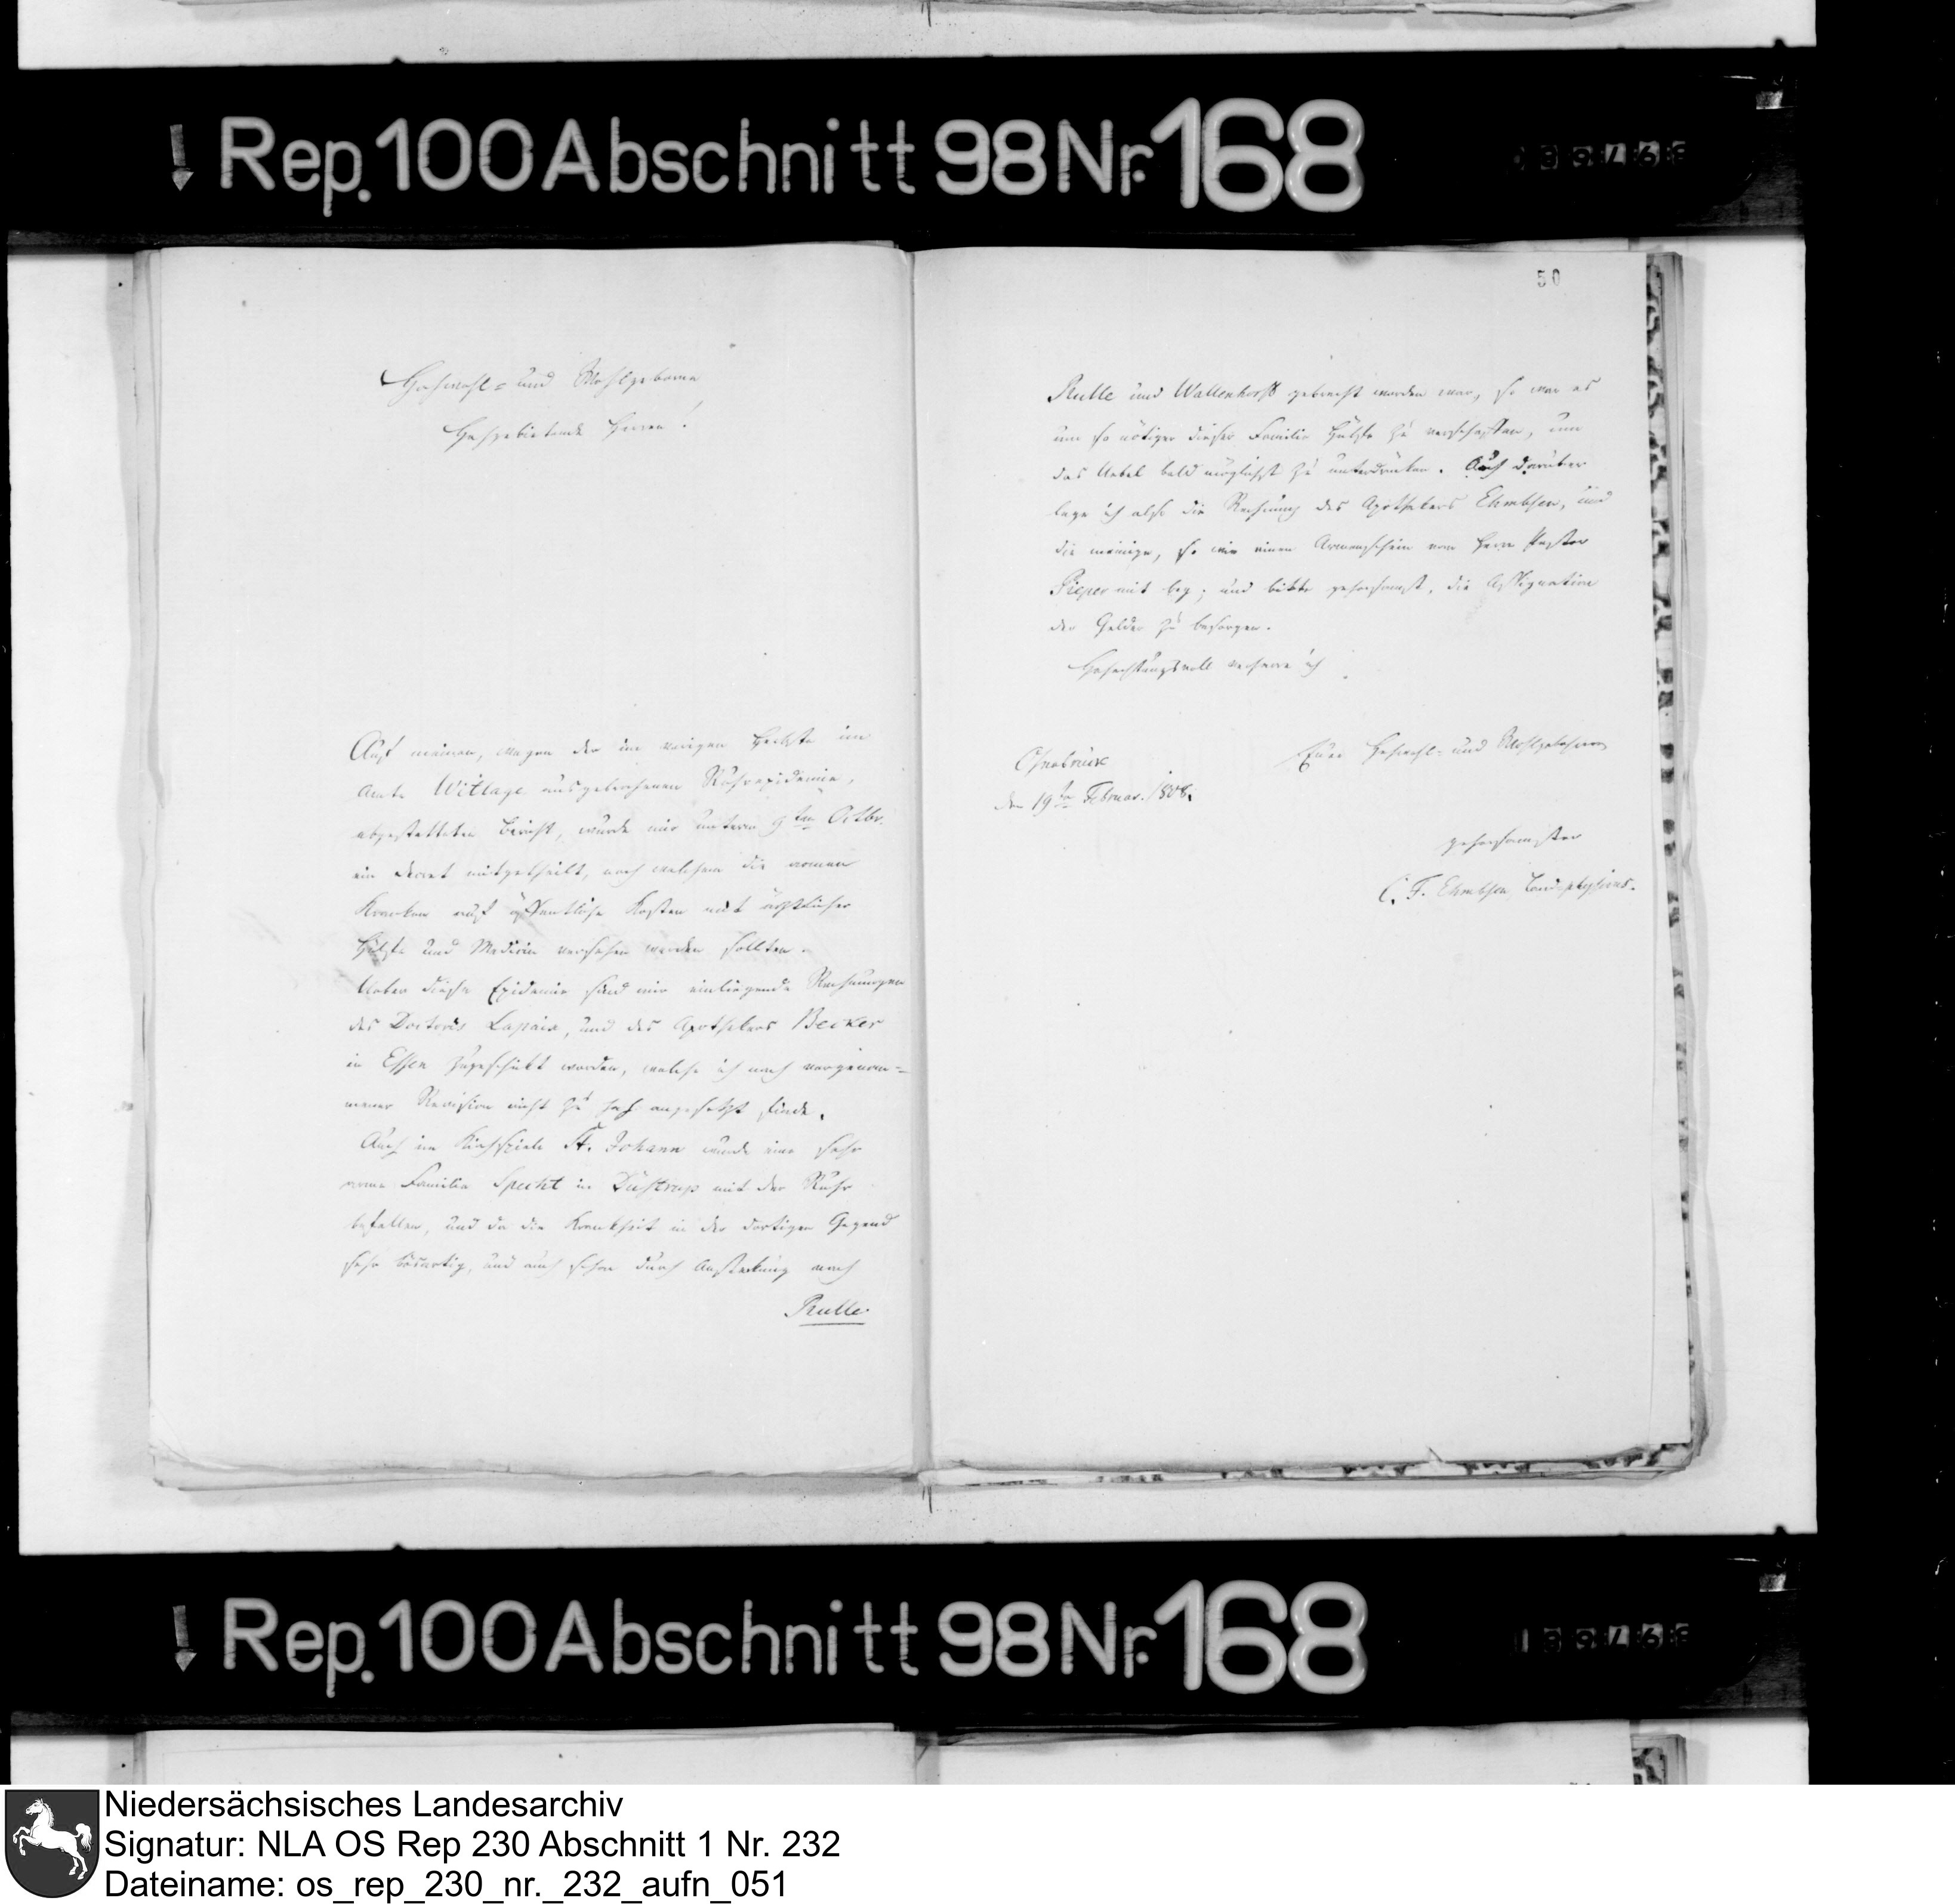 Rep. 100 Abschnitt 98 Nr. 168
Hochwohl= und Wohlgeborne
Hochgebietende Herren!
Auf meinen, wegen der im vorigen Herbste im
Amte Witlage ausgebrochenen Ruhrepidemie,
abgestatteten Bericht, wurde mir unterm 9ten Octbr.
ein Decret mitgetheilt, nach welchem die armen
Kranken auf öffentliche Kosten mit ärztlicher
Hülfe und Medicin versehen werden sollten.
Ueber diese Epidemie sind mir einliegende Rechnungen
des Doctoris Lapaix, und des Apothekers Becker
in Essen zugeschikt worden, welche ich nach vorgenom=
mener Revision nicht zu hoch angesetzt finde.
Auch im Kirchspiele St. Johann wurde eine sehr
arme Familie Specht in Düstrup mit der Ruhr
befallen, und da die Krankheit in der dortigen Gegend
sehr bösartig, und auch schon durch Anstekung nach
Rulle
50
Rulle und Wallenhorst gebracht worden war, so war es
um so nötiger dieser Familie Hülfe zu verschaffen, um
das Uebel bald möglichst zu unterdrüken. Auch darüber
lege ich also die Rechnung des Apothekers Ehmbsen, und
die meinige, so wie einen Armenschein vom Herrn Pastor
Pieper mit bey; und bitte gehorsamst, die Assignation
der Gelder zu besorgen.
Hochachtungsvoll verharre ich
Euer Hochwohl= und Wohlgebohren
Osnabrück
den 19ten Februar. 1808.
gehorsamster
C. F. Ehmbsen Landphysicus.
Rep. 100 Abschnitt 98 Nr. 168
Niedersächsisches Landesarchiv
Signatur: NLA OS Rep 230 Abschnitt 1 Nr. 232
Dateiname: os_rep_230_nr._232_aufn_051